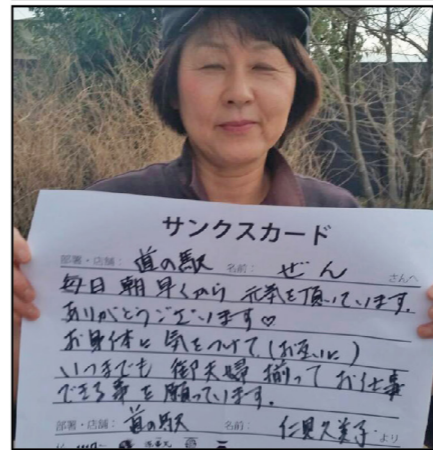 サンクスカード
部署・店舗： 道の駅 名前： ぜん さんへ
毎日朝早くから元気を頂いています。
ありがとうございます♡
お身体に気をつけて（お互いに）
いつまでも御夫婦揃ってお仕事
できる事を願っています。
部署・店舗： 道の駅 名前： 仁見久美子 より